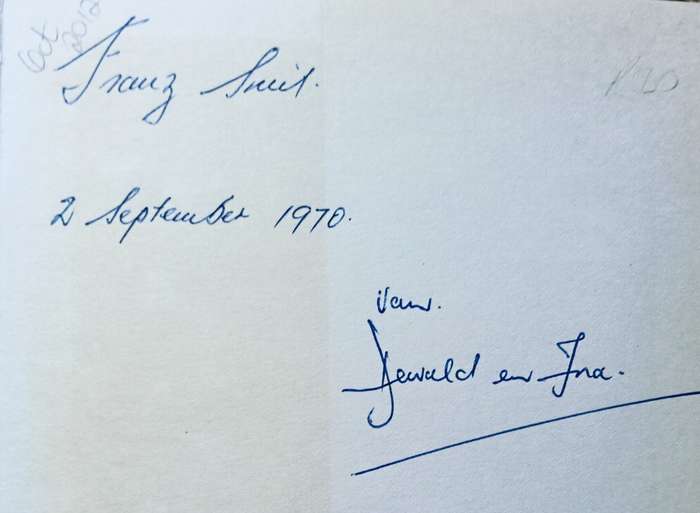 Oct
2012
R20
Franz Smit.
2 September 1970.
van.
Dewald en Ina.